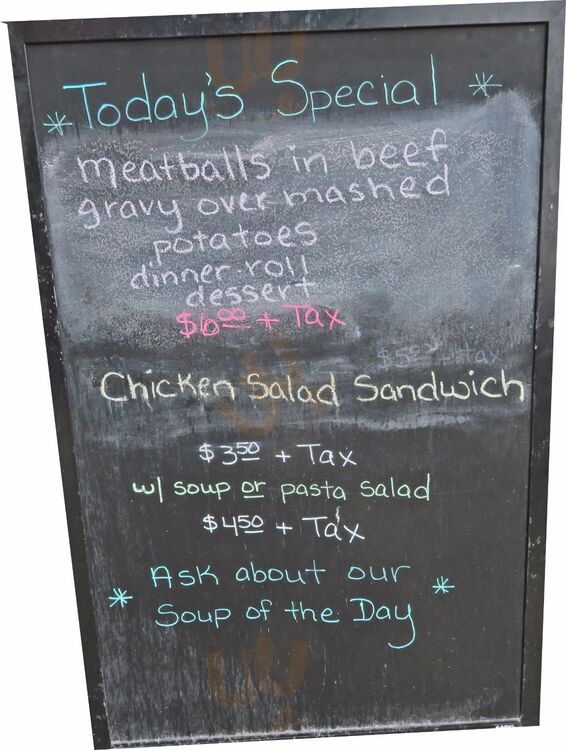 * Today's Special *
meatballs in beef
gravy over mashed
potatoes
dinner roll
dessert
$6.00 + Tax
Chicken Salad Sandwich
$3.50 + Tax
w/ soup or pasta salad
$4.50 + Tax
* Ask about our *
Soup of the Day